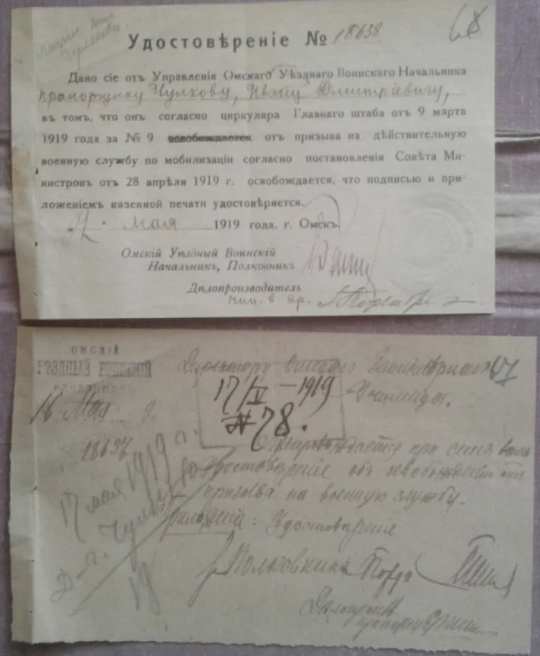 68
Удостовѣреніе № 18638
Дано сіе отъ Управленія Омскаго Уѣзднаго Воинскаго Начальника
прапорщику Чулкову, Ивану Дмитріевичу,
въ томъ, что онъ согласно циркуляра Главнаго штаба отъ 9 марта
1919 года за № 9 освобождается отъ призыва на дѣйствительную
военную службу по мобилизаціи согласно постановленія Совѣта Ми-
нистровъ отъ 28 апрѣля 1919 г. освобождается, что подписью и при-
ложеніемъ казенной печати удостовѣряется.
мая 1919 года, г. Омскъ.
Омскій Уѣздный Воинскій
Начальникъ, Полковникъ
Дѣлопроизводитель
ОМСКІЙ
УѢЗДНЫЙ ВОИНСКІЙ
НАЧАЛЬНИКЪ
Директору Омскаго
67
училища.
16 Мая
17/V – 1919
№ 78.
18637
при семъ
удостовереніе объ освобожденіи отъ
призыва на военную службу.
Приложеніе: Удостовѣреніе
17 мая 1919 г.
Полковникъ